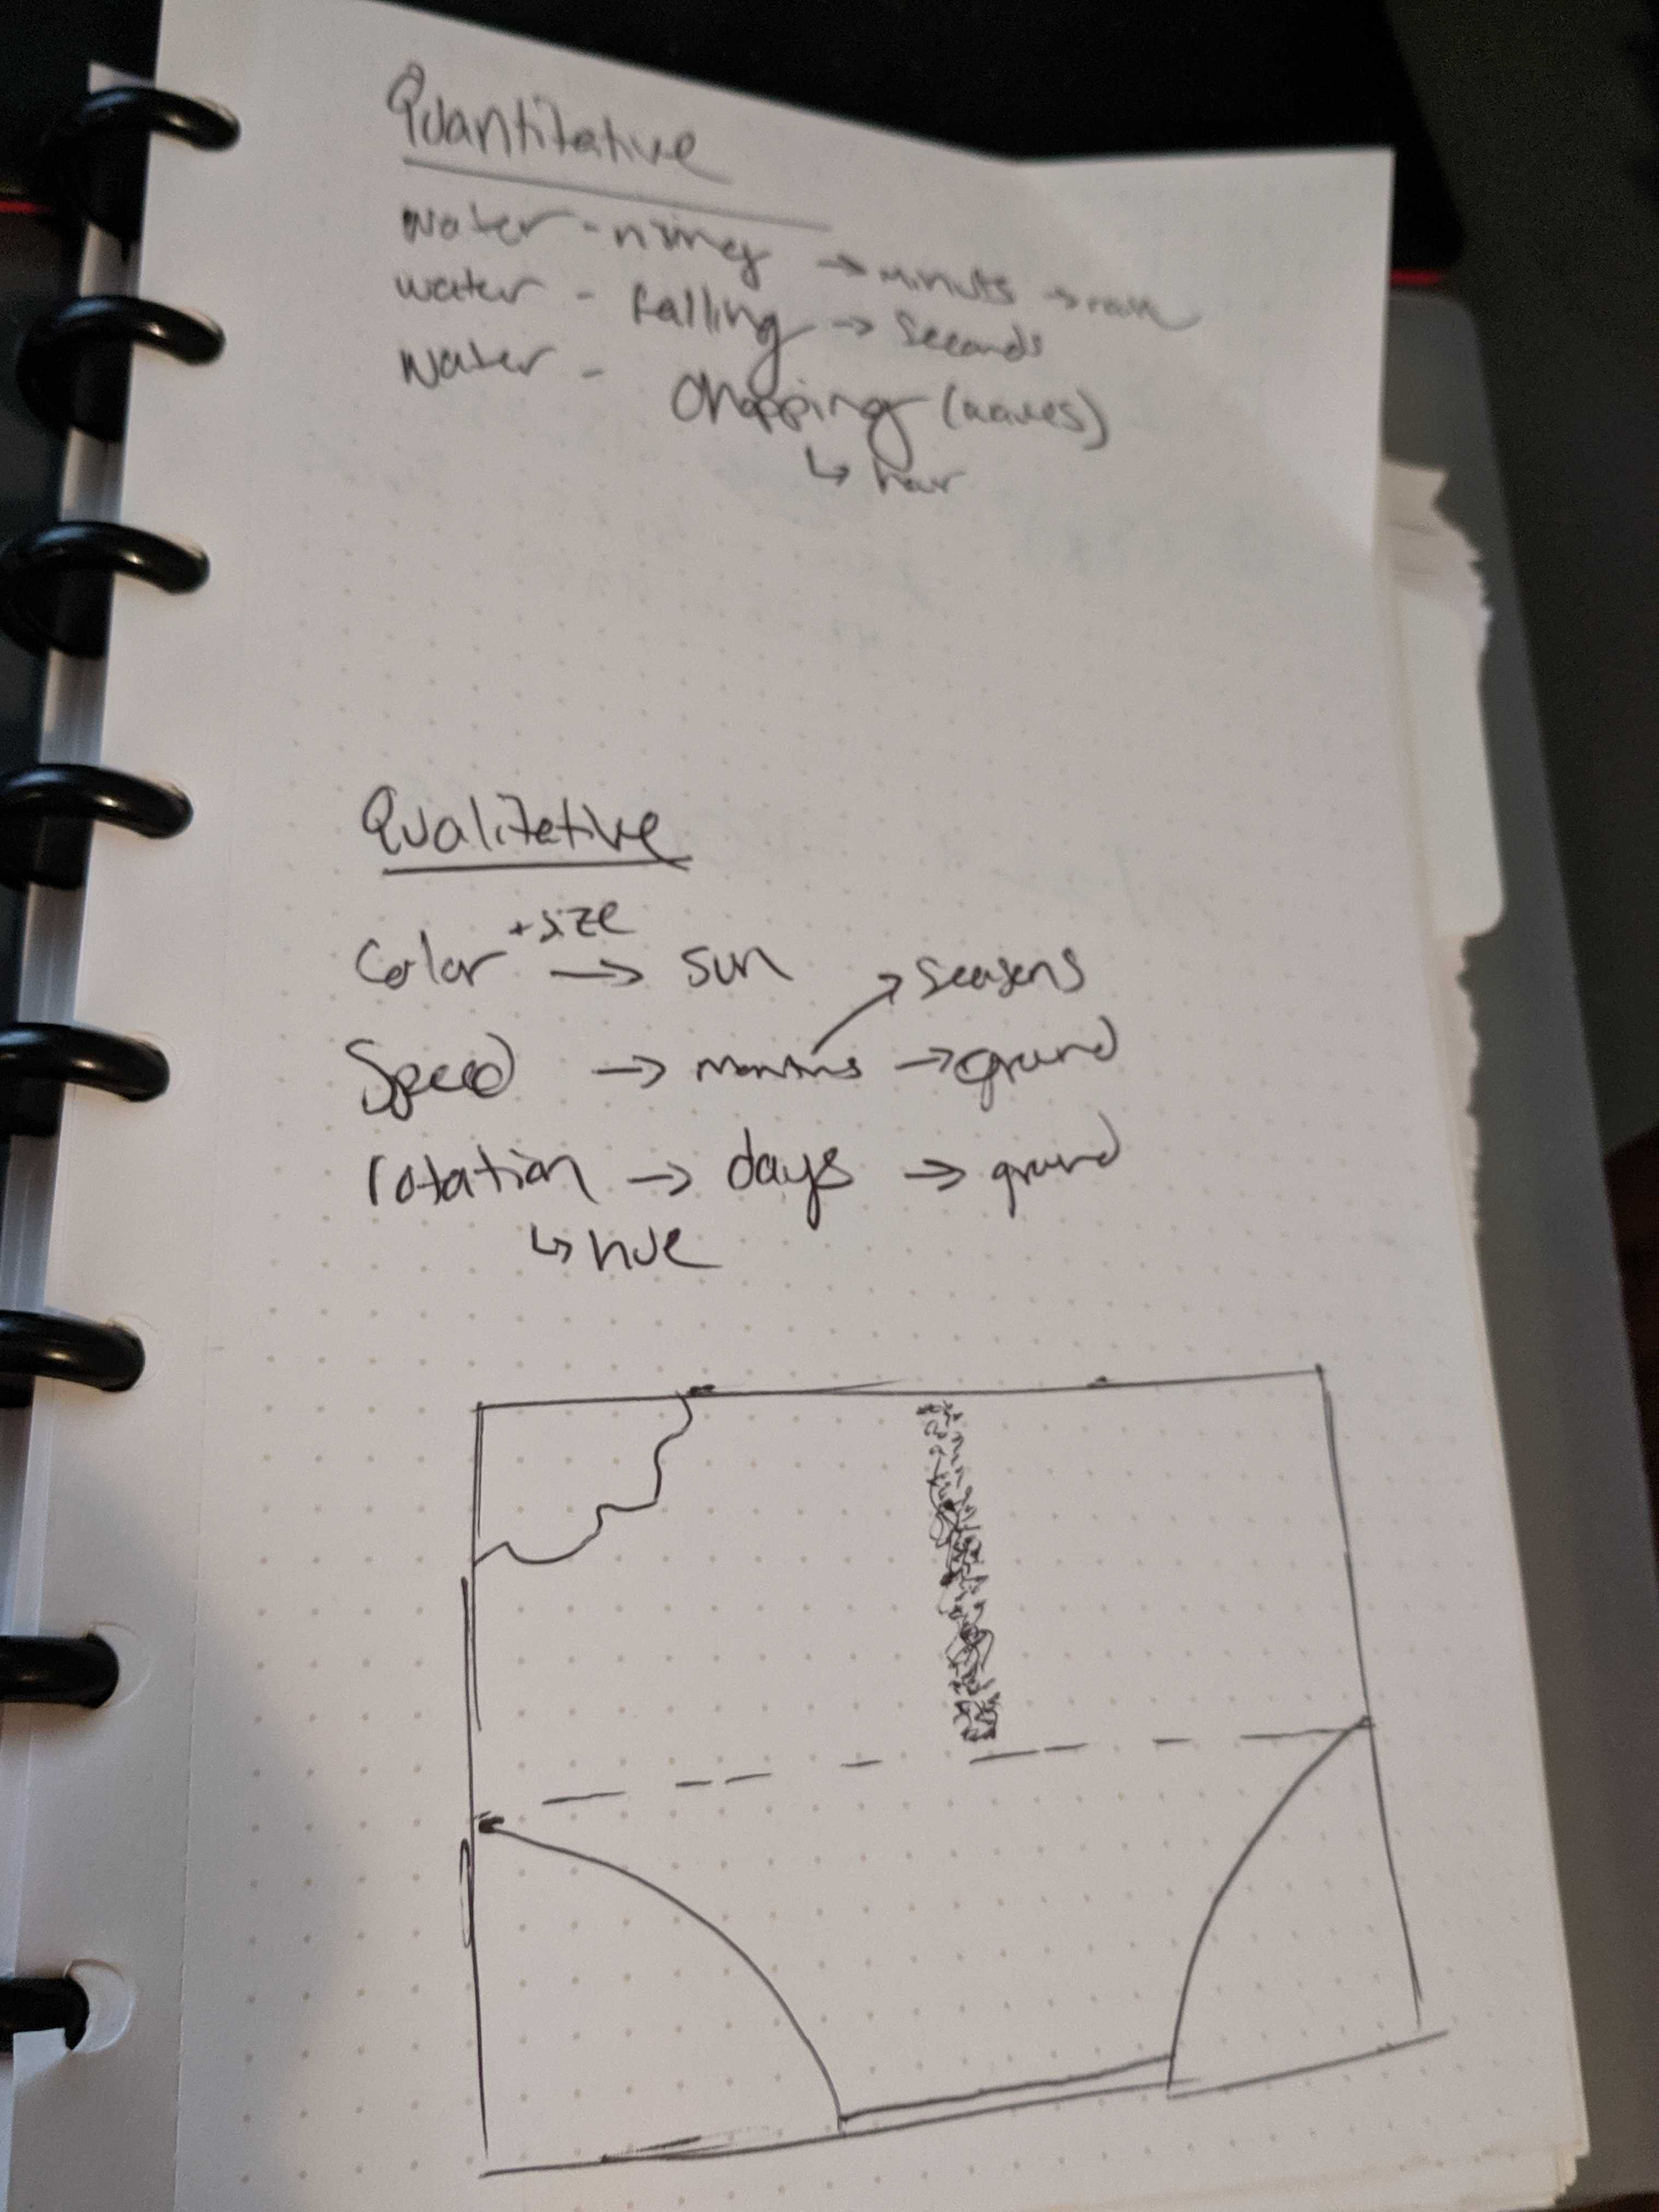 Quantitative
water - rising → minuts →
water - falling → seconds
water - Chopping (waves)
↳ hour
Qualitative
+ size
Color → sun
seasons
Speed → months → ground
rotation → days → ground
↳ hue